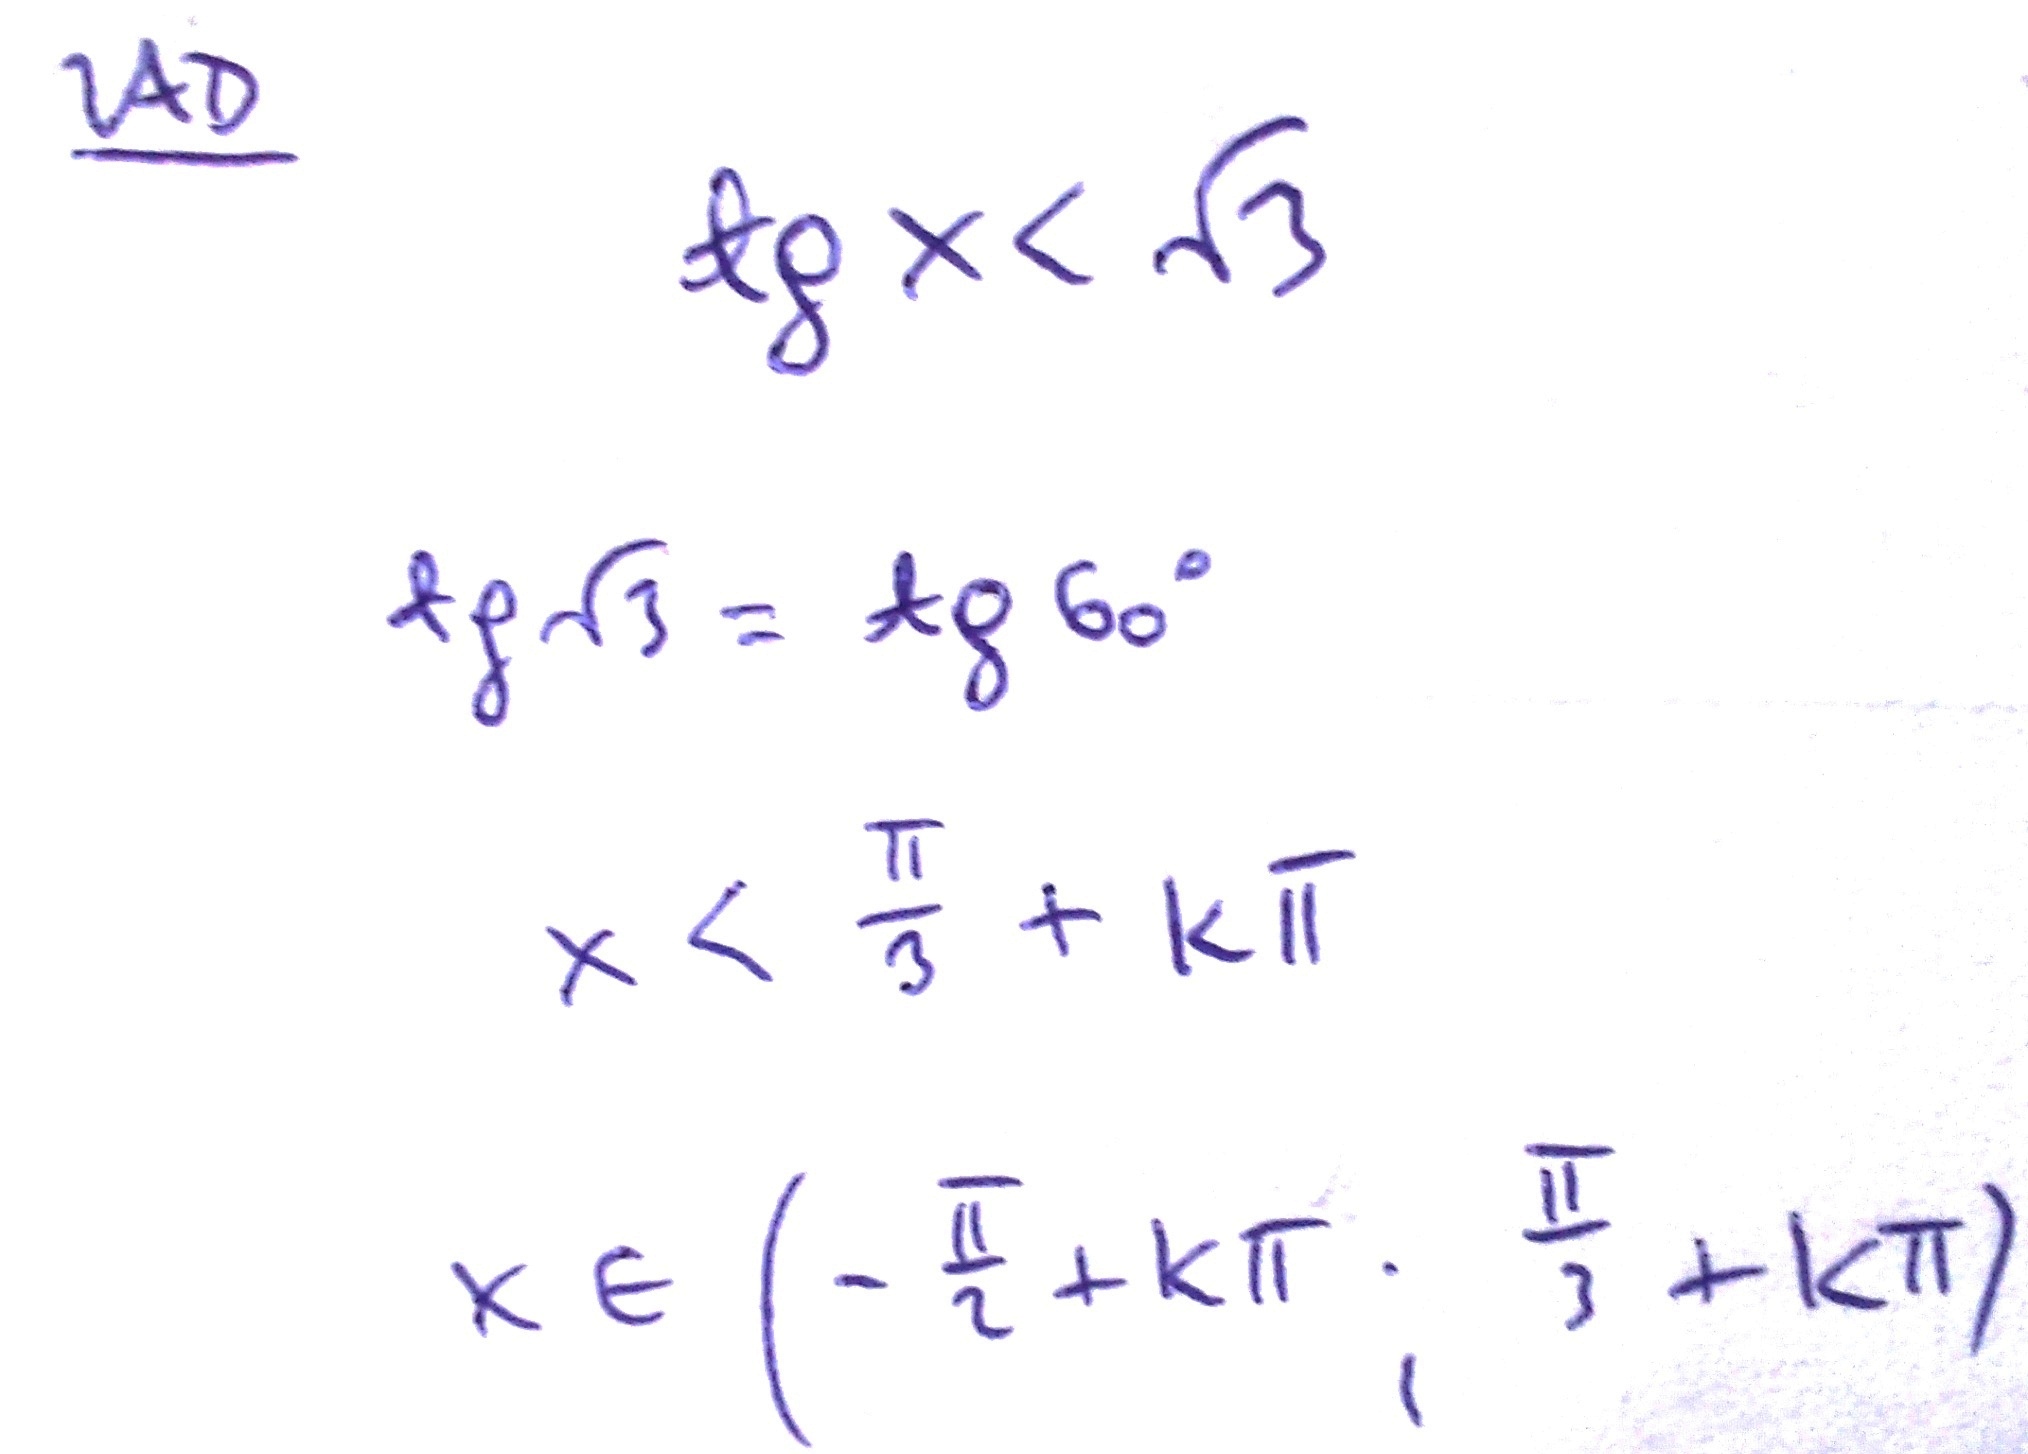 ZAD
tg x < √3
tg √3 = tg 60°
x < π/3 + kπ
x ∈ (-π/2 + kπ ; π/3 + kπ)